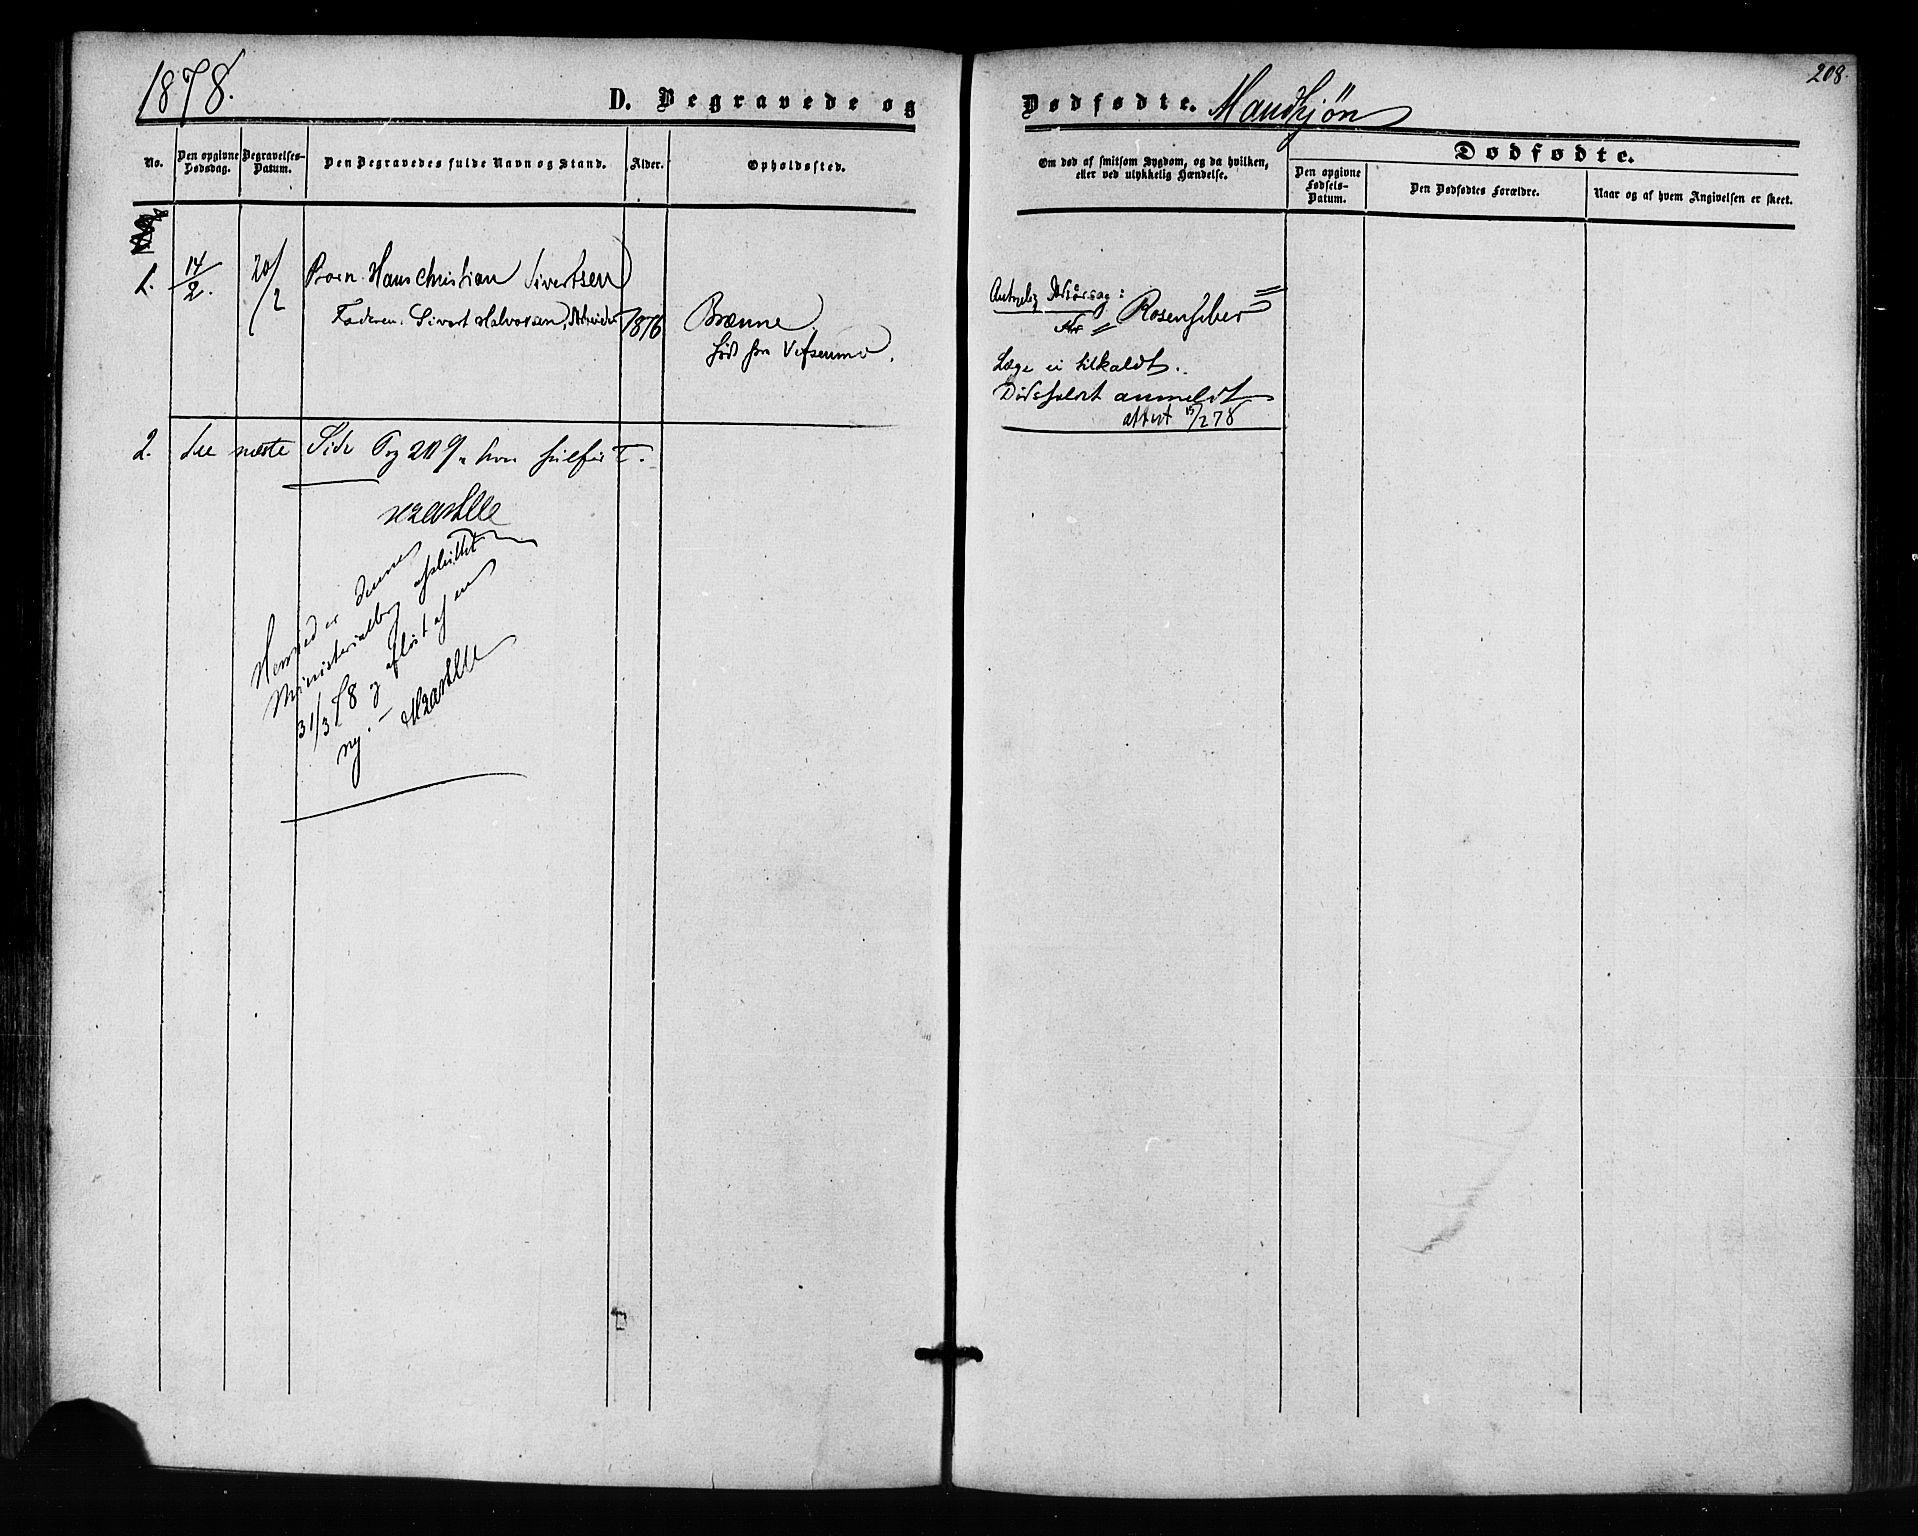 1878.
D. Begravede og
Dødfødte. Mandkjøn
208.
No.
Den opgivne Dødsdag.
Begravelses-Datum.
Den Begravedes fulde Navn og Stand.
Alder.
Opholdssted.
Om død af smitsom Sygdom, og da hvilken, eller ved ulykkelig Hændelse.
Dødfødte.
Den opgivne Fødsels-Datum.
Den Dødfødtes Forældre.
Naar og af hvem Angivelsen er skeet.
1.
14/2.
20/2
Barn Hans Christian Sivertsen
Faderen. Sivert Halvorsen, Arbeider
1876
Brænne.
født paa Vefsenmo.
Antagelig Aarsag:
Rosenfeber
Læge ei tilkaldt.
Dødsfaldet anmeldt
attest 15/2 78
2. See næste Side Pag 209
Hermed er denne
Ministerialbog afsluttet
31/3 78 og afløst af en
ny.